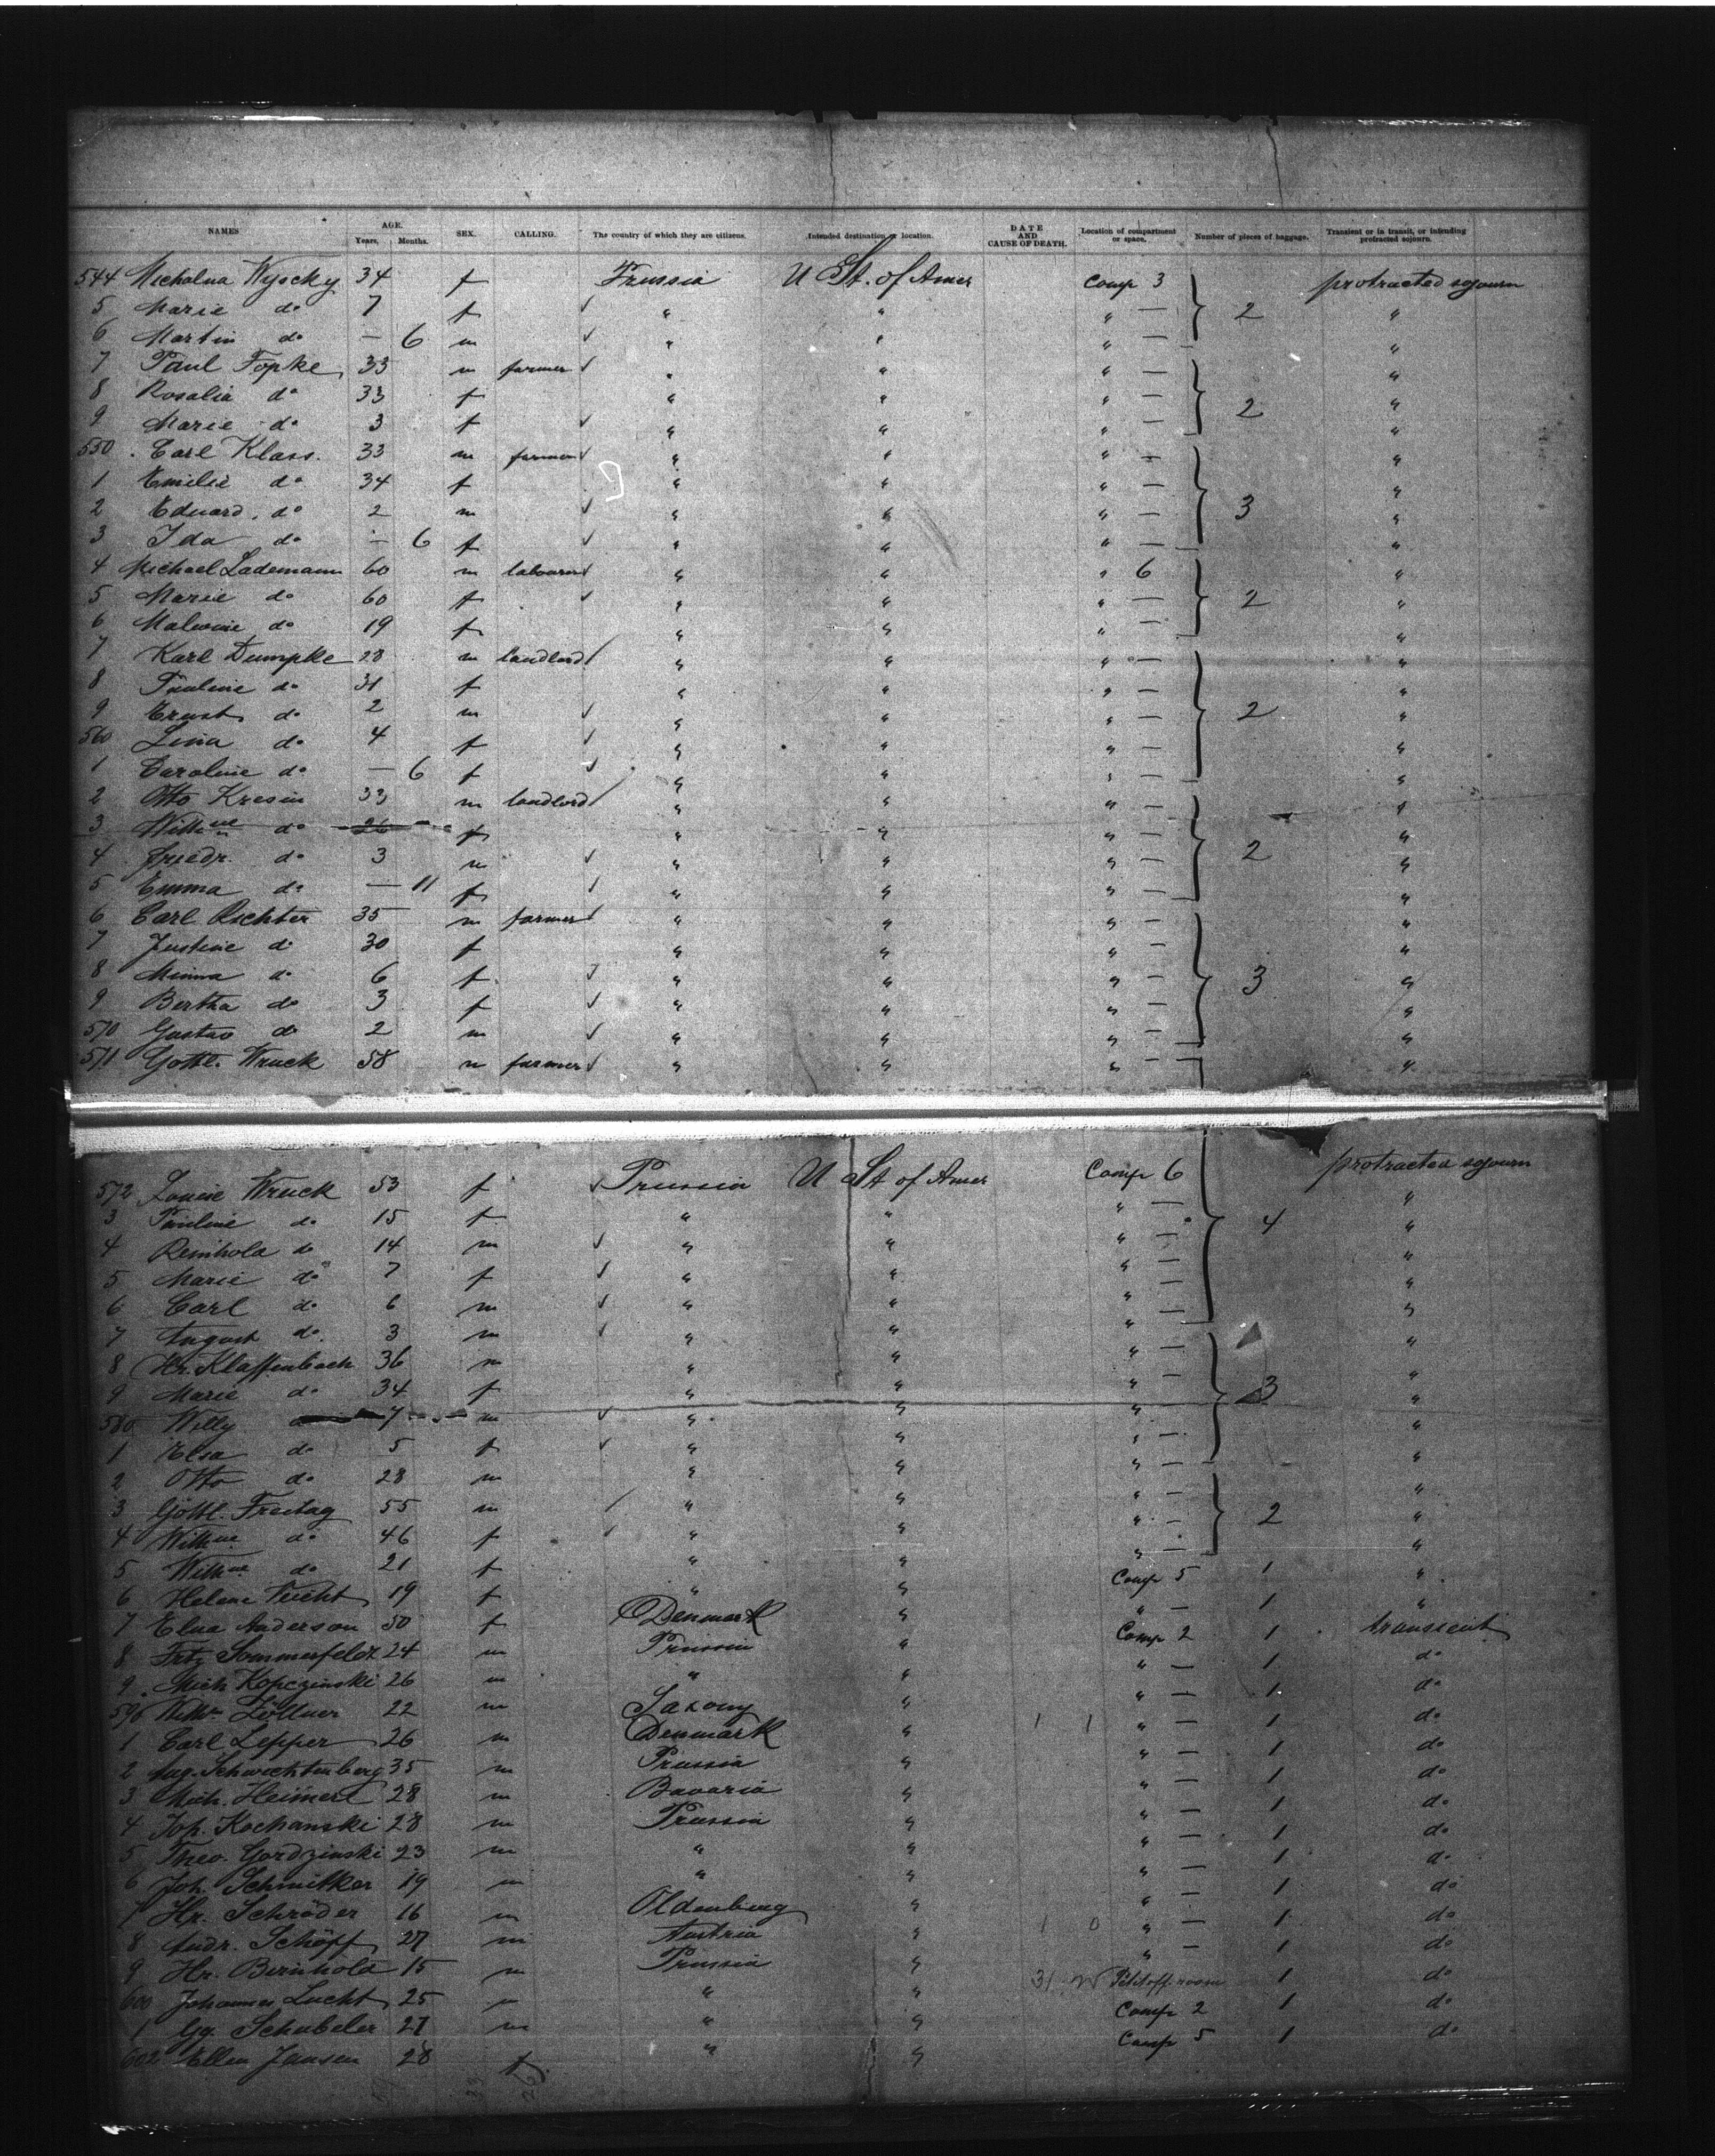 NAMES AGE. Years. Months. SEX. CALLING. The country of which they are citizens. Intended destination or location. DATE AND CAUSE OF DEATH. Location of compartment or space. Number of pieces of baggage. Transient or in transit, or intending protracted sojourn.
544 Micholina Wysocky 34 f Prussia U St. of Amer Comp 3 protracted sojourn
5 Marie do 7 f " " " — 2 "
6 Martin do — 6 m " " " — "
7 Paul Fopke 33 m farmer " " " — "
8 Rosalia do 33 f " " " — "
9 Marie do 3 f " " " — 2 "
550 Carl Klass. 33 m farmer " " " — "
1 Emilie do 34 f " " " — "
2 Eduard do 2 m " " " — 3 "
3 Ida do — 6 f " " " — "
4 Michael Lademann 60 m labourer " " " 6 "
5 Marie do 60 f " " " — 2 "
6 Malwine do 19 f " " " — "
7 Karl Dumpke 28 m landlord " " " — "
8 Pauline do 31 f " " " — "
9 Ernst do 2 m " " " — 2 "
560 Lina do 4 f " " " — "
1 Caroline do — 6 f " " " — "
2 Otto Kresin 33 m landlord " " " — "
3 Wilhne do 26 f " " " — "
4 Friedr. do 3 m " " " — 2 "
5 Emma do — 11 f " " " — "
6 Carl Richter 35 m farmer " " " — "
7 Justine do 30 f " " " — "
8 Minna do 6 f " " " — 3 "
9 Bertha do 3 f " " " — "
570 Gustav do 2 m " " " — "
571 Gottl. Wruck 58 m farmer " " " — "
572 Louise Wruck 53 f Prussia U St of Amer Comp 6 protracted sojourn
3 Pauline do 15 f " " " — "
4 Reinhold do 14 m " " " — 4 "
5 Marie do 7 f " " " — "
6 Carl do 6 m " " " — "
7 August do 3 m " " " — "
8 Hr. Klaffenbach 36 m " " " — "
9 Marie do 34 f " " " — 3 "
580 Willy 7 m " " " "
1 Elsa do 5 f " " " — "
2 Otto do 28 m " " " — "
3 Gottl. Freitag 55 m " " " — 2 "
4 Wilhne do 46 f " " " — "
5 Wilhne do 21 f " " " — "
6 Helene Veicht 19 f " " Comp 5 1 "
7 Elna Anderson 50 f Denmark " " — 1 "
8 Fritz Sommerfeldt 24 m Prussia " Comp 2 1 transient
9 Mich Kopczinski 26 m " " " — 1 do
590 Wilh. Zöllner 22 m Saxony " " — 1 do
1 Carl Lepper 26 m Denmark " 1 1 " — 1 do
2 Aug. Schwichtenberg 35 m Prussia " " — 1 do
3 Mich. Heimerl 28 m Bavaria " " — 1 do
4 Joh. Kochanski 28 m Prussia " " — 1 do
5 Theo. Gordzinski 23 m " " " — 1 do
6 Joh. Schmitker 19 m " " " — 1 do
7 Hr. Schröder 16 m Oldenburg " " — 1 do
8 Andr. Schöpf 27 m Austria " 1 0 " — 1 do
9 Hr. Bernhold 15 m Prussia " " — 1 do
600 Johannes Lucht 25 m " " 31 1 do
1 Gg. Schubeler 27 m " " Comp 2 1 do
602 Ellen Jansen 28 f " " Comp 5 1 do